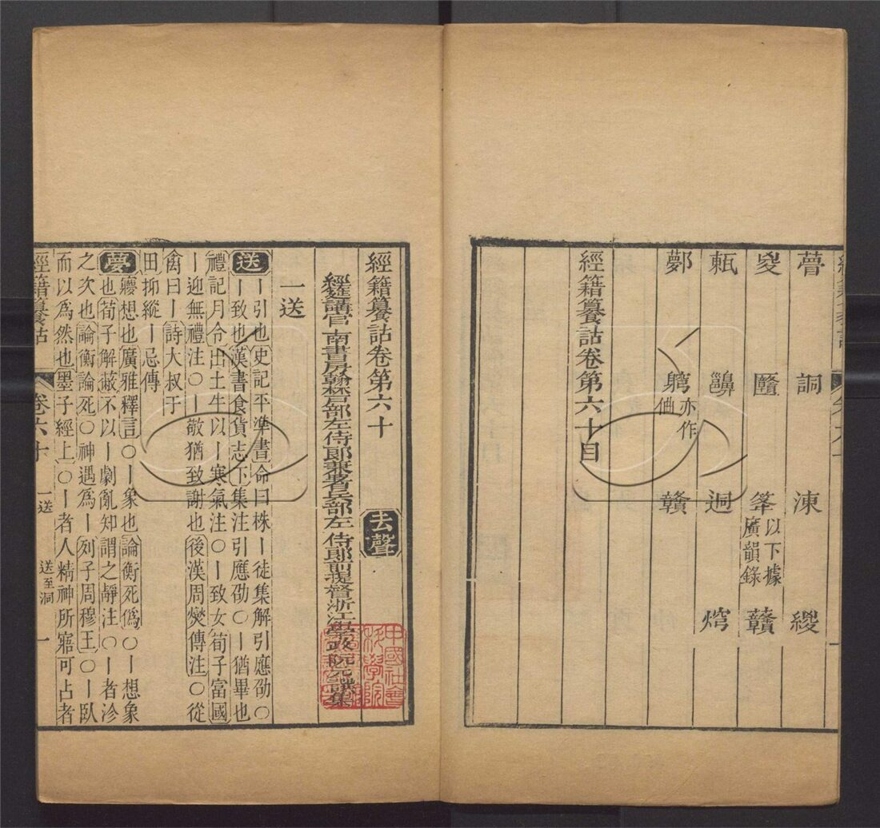 瞢 詷 涷 緵
㚇 𧮫 夆 以下據廣韻錄 贛
㼧 齈 迵 焪
鄸 䳟 亦作 㑋 贛
經籍籑詁卷第六十目
經籍籑詁卷第六十 去聲
經筵講官南書房翰林戶部左侍郎兼署兵部左侍郎前提督浙江學政阮元譔集
一送
送 ー引也史記平準書命曰株ー徒集解引應劭○
ー致也漢書食貨志下集注引應劭○ー猶畢也
禮記月令出土牛以ー寒氣注○ー致女荀子富國
ー迎無禮注○ー敬猶致謝也後漢周燮傳注○從
禽曰ー詩大叔于
田抑縱ー忌傳
夢 ー想也廣雅釋言○ー象也論衡死僞○ー想象
也荀子解蔽不以ー劇亂知謂之靜注○ー者沴
之次也論衡論死○神遇爲ー列子周穆王○ー臥
而以爲然也墨子經上○ー者人精神所寤可占者
經籍籑詁 卷六十 一送 送至洞 一